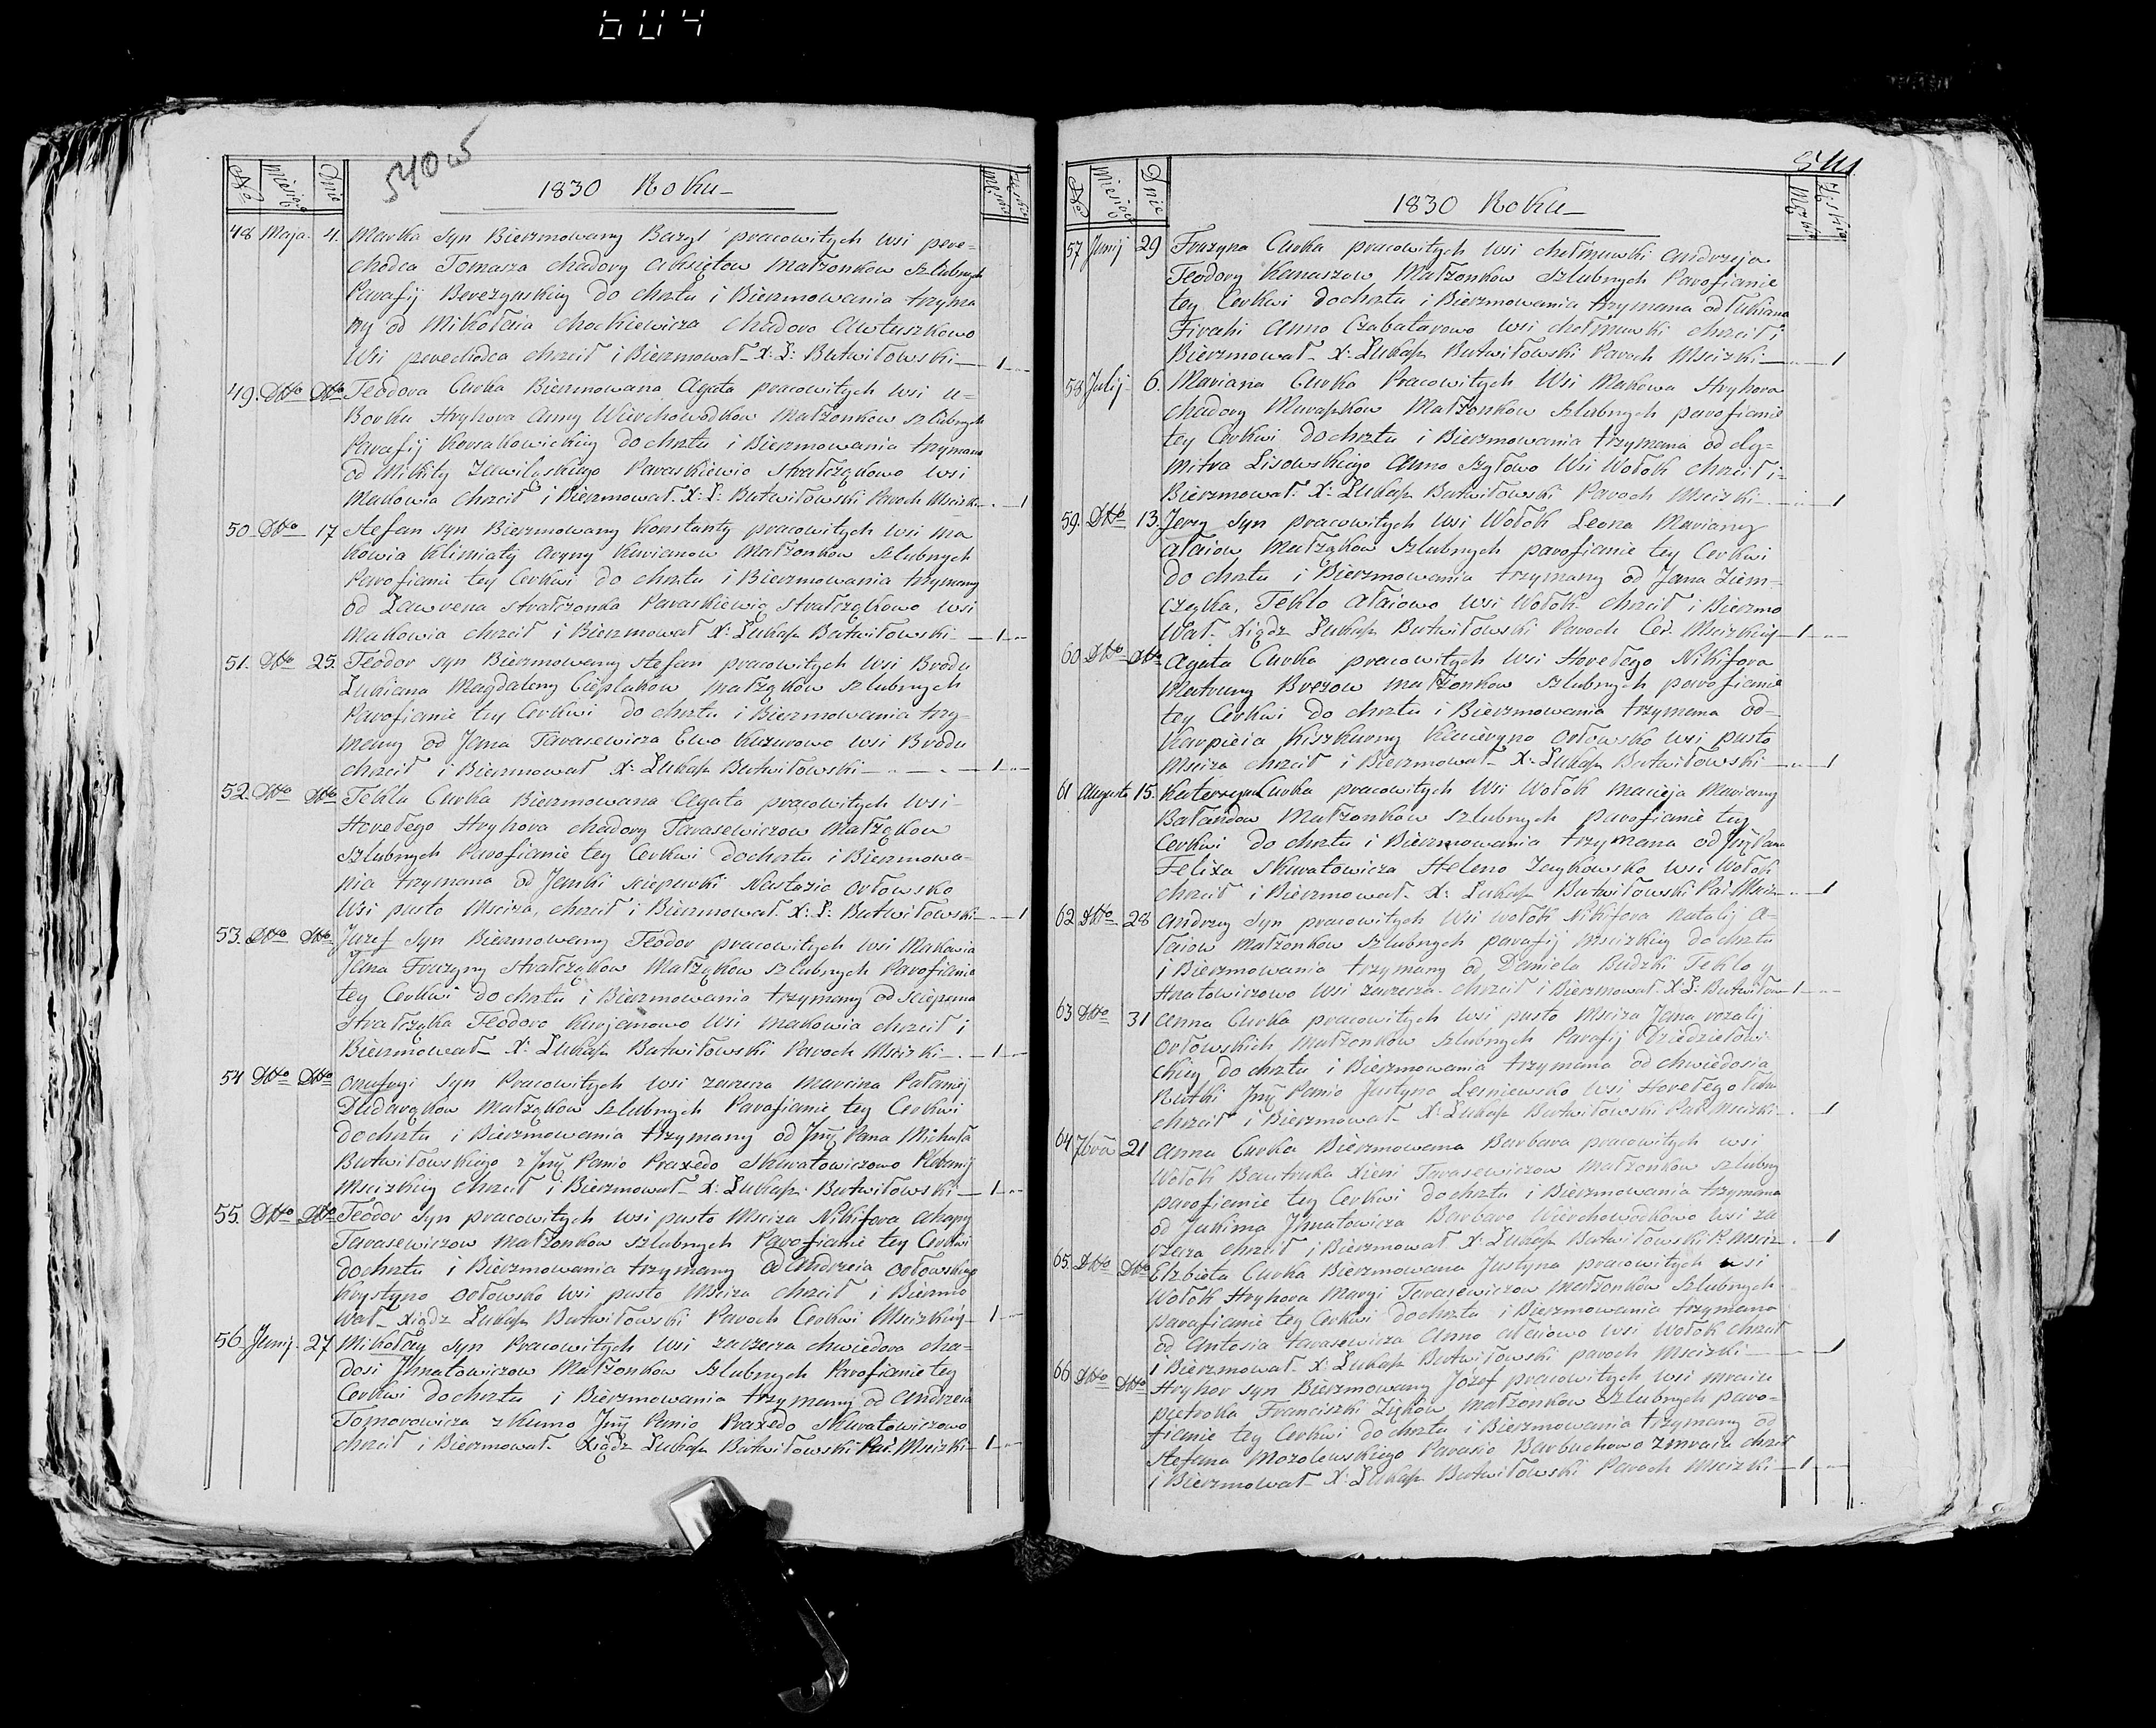 604
540 w
No Miesiąc Dnie
1830 Roku
48 Maja 4. Marka Syn Bierzmowany Bazyl pracowitych wsi pere=
chodca Tomasza chadory Aksiętow Małżonkow szlubnych
Parafij Berezynskiey do chrztu i Bierzmowania trzyma
ny od Mikołaia Chockiewicza Chadoro Awtuszkowo
Wsi perechodca chrzcił i Bierzmował X: Ł: Butwiłowski 1
49. Dtto Dtto Teodora Curka Bierzmowana Agata pracowitych wsi u=
Borku Hryhora Anny Wierchowodkow Małżonkow szlubnych
Parafij Korsakowickiey do chrztu i Bierzmowania trzymana
od Mikity Paraskiewio Strałcząkowo wsi
Makowia Chrzcił i Bierzmował X: Ł: Butwiłowski Paroch Mscizk. 1
50 Dtto 17 Stefan syn Bierzmowany Konstanty pracowitych wsi Ma
kowia Klimiaty Aryny Kurianow Małżonkow szlubnych
Parofianie tey Cerkwi do chrztu i Bierzmowania trzymany
od Ławrena Strałczonka Paraskiewią Strałcząkowo wsi
Makowia chrzcił i Bierzmował X: Łukasz Butwiłowski 1
51. Dtto 25. Teodor syn Bierzmowany Stefan pracowitych wsi Brodu
Łukiana Magdaleny Cieplakow Małżąkow szlubnych
Parofianie tey Cerkwi do chrztu i Bierzmowania trzy=
many od Jana Tarasewicza Ewo Kazurowo wsi Brodu
chrzcił i Bierzmował X: Łukasz Butwiłowski 1
52. Dtto Dtto Tekla Curka Bierzmowana Agata pracowitych wsi
Horełego Hryhora chadory Tarasewiczow Małżąkow
szlubnych Parofianie tey Cerkwi dochrztu i Bierzmowa=
nia trzymana od Jamki sciepurki Nastazio Orłowsko
Wsi pusto Msciza, chrzcił i Bierzmował X: Ł: Butwiłowski 1
53. Dtto Dtto Juzef Syn Bierzmowany Teodor pracowitych wsi Makowia
Jana Fruzyny Strałcząkow Małżąkow szlubnych Parofianie
tey Cerkwi do chrztu i Bierzmowania trzymany od sciepana
Strałcząka Teodoro Kurjanowo Wsi Makowia chrzcił i
Bierzmował X: Łukasz Butwiłowski Paroch Mscizki 1
54 Dtto Dtto Onufryi syn Pracowitych wsi zarzecza Marcina Pałanniej
Dudarąkow Małżąkow szlubnych Parofianie tey Cerkwi
dochrztu i Bierzmowania trzymany od Jmę Pana Michała
Butwiłowskiego z Jmę Panio Praxedo Skuratowiczowo Plebanij
Mscizkiey chrzcił i Bierzmował X: Łukasz Butwiłowski 1
55. Dtto Dtto Teodor syn pracowitych wsi pusto Msciza Nikifora Ahapy
Tarasewiczow Małżonkow szlubnych Parofianie tey Cerkwi
dochrztu i Bierzmowania trzymany od Andrzeia Orłowskiego
Krystyno Orłowsko wsi pusto Msciza chrzcił i Bierzmo
wał Xiądz Łukasz Butwiłowski Paroch Cerkwi Mscizkiey 1
56 Junij 27 Mikołay syn Pracowitych wsi zarzecza chwiedora cha=
dosi Jhnatowiczow Małżonkow szlubnych Parofianie tey
Cerkwi dochrztu i Bierzmowania trzymany od Andrzeia
Tomorowicza z kumo Jmę Panio Praxedo Skuratowiczowo
chrzcił i Bierzmował Xiądz Łukasz Butwiłowski Par. Mscizki 1
541
No Miesiąc Dnie
1830 Roku
57 Junij 29 Fruzyna Curka pracowitych wsi chołmuwki Andrzeja
Teodory Kanaszow Małżonkow szlubnych Parofianie
tey Cerkwi dochrztu i Bierzmowania trzymana od Łukiana
Firahi Anno Czabatarowo wsi chołmuwki chrzcił i
Bierzmował X: Łukasz Butwiłowski Paroch Mscizki 1
58 Julij 6. Mariana Curka Pracowitych Wsi Makowa Hryhora
chadory Muraszkow Małżonkow szlubnych parofianie
tey Cerkwi dochrztu i Bierzmowania trzymana od dy=
mitra Lisowskiego Anno Szyłowo Wsi Wołok chrzcił i
Bierzmował X: Łukasz Butwiłowski Paroch Mscizki 1
59. Dtto 13. Jerzy Syn pracowitych wsi Wołok Leona Marianny
Ałaiow Małżąkow szlubnych parofianie tey Cerkwi
do chrztu i Bierzmowania trzymany od Jana Ziem=
cząka, Teklo Ałaiowo wsi Wołok chrzcił i Bierzmo
wał Xiądz Łukasz Butwiłowski Paroch Cer. Mscizkiey 1
60. Dtto Dtto Agata Curka pracowitych wsi Horełego Nikifora
Matruny Brezow Małżonkow szlubnych parofianie
tey Cerkwi do chrztu i Bierzmowania trzymana od
Karpieia Kiszkurny Orłowsko wsi pusto
Msciza chrzcił i Bierzmował X: Łukasz Butwiłowski 1
61 Augusta 15. Katerzyna Curka pracowitych Wsi Wołok Macieja Marianny
Bałandow Małżonkow szlubnych parofianie tey
Cerkwi do chrztu i Bierzmowania trzymana od Jmę Pana
Felixa Skuratowicza Heleno Zaykowsko wsi Wołok
chrzcił i Bierzmował X: Łukasz Butwiłowski Par. Msciz. 1
62 Dtto 28 Andrzey Syn pracowitych Wsi Wołok Nikifora Natalij A=
łaiow Małżonkow szlubnych parafij Mscizkiey do chrztu
i Bierzmowania trzymany od Daniela Budzki Teklo y
Hnatowiczowo wsi zarzecza chrzcił i Bierzmował X: Ł: Butwiłow 1
63 Dtto 31 Anna Curka pracowitych wsi pusto Msciza Jana rozalij
Orłowskich Małżonkow szlubnych Parafij Dziedziełowi=
ckiey dochrztu i Bierzmowania trzymana od chwiedosia
Rutki Jmę Panio Justyno Lesniewsko wsi Horełego
chrzcił i Bierzmował X: Łukasz Butwiłowski Par. Mscizki 1
64 7bra 21 Anna Curka Bierzmowana Barbara pracowitych wsi
Wołok Bautruka Xieni Tarasewiczow Małżonkow szlubny
parofianie tey Cerkwi dochrztu i Bierzmowania trzymana
od Jakima Jhnatowicza Barbaro Wierchowodkowo wsi za
rzecza chrzcił i Bierzmował X: Łukasz Butwiłowski P. Msciz. 1
65. Dtto Dtto Elzbieta Curka Bierzmowana Justyna pracowitych wsi
Wołok Hryhora Maryi Tarasewiczow Małżonkow szlubnych
parafianie tey Cerkwi dochrztu i Bierzmowania trzymana
od Antosia tarasewicza Anno Ałaiowo wsi Wołok chrzcił
i Bierzmował X: Łukasz Butwiłowski paroch Mscizki 1
66 Dtto Dtto Hryhor syn Bierzmowany Józef pracowitych wsi mraiu
pietroka Franciszki Ziękow Małżonkow szlubnych paro=
fianie tey Cerkwi dochrztu i Bierzmowania trzymany od
Stefana Mozolewskiego Parasio Barbuchowo zmraiu chrzcił
i Bierzmował X: Łukasz Butwiłowski Paroch Mscizki 1